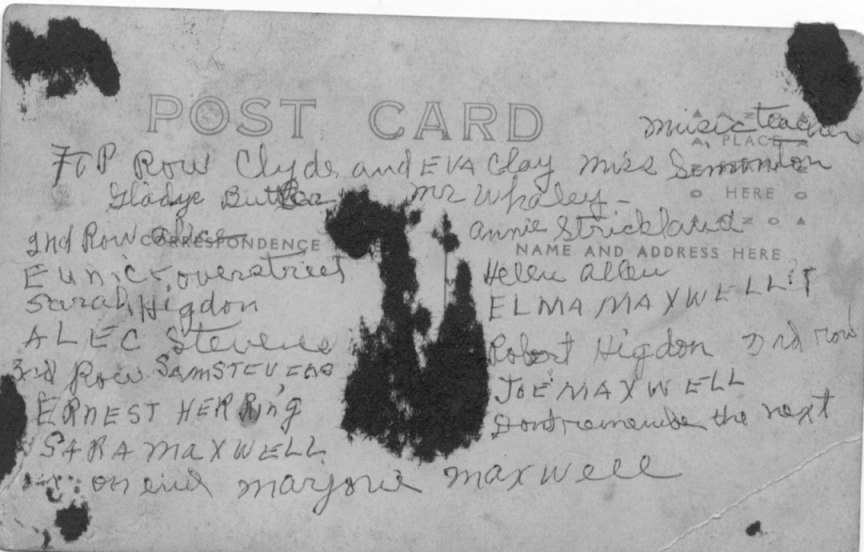 POST CARD
music teacher
PLACE
HERE
Row Clyde and EVA Clay Miss Simonton
Gladye Butler Mr Whaley -
2nd Row Alice Annie Strickland
CORRESPONDENCE HERE NAME AND ADDRESS HERE
Eunice overstreet Helen Allen
Sarah Higdon ELMA MAXWELL
ALEC Stevens Robert Higdon 3rd row
3rd Row SAM STEVENS JOE MAXWELL
ERNEST HERRing Dont remember the next
SARA MAXWELL
on end marjorie maxwell